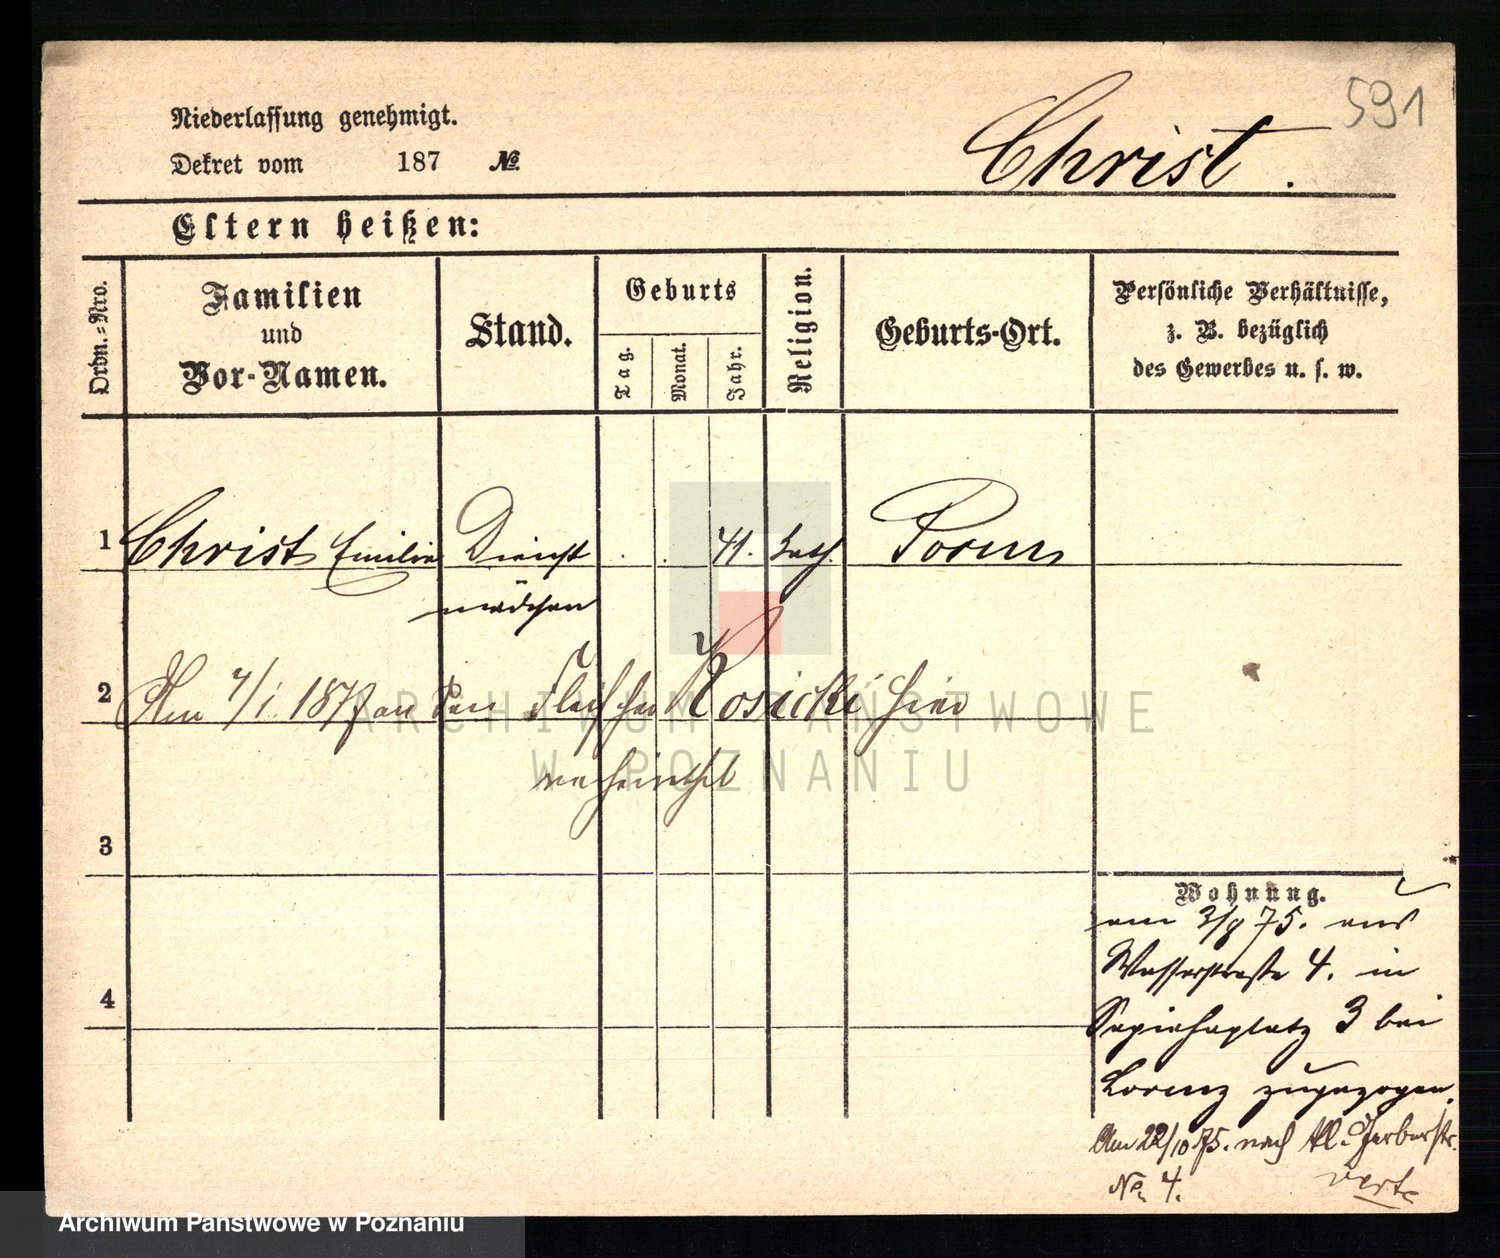 591
Niederlassung genehmigt.
Dekret vom 187 №
Christ.
Eltern heißen:
Ordn.=Nro.
Familien
und
Vor-Namen.
Stand.
Geburts
Tag.
Monat.
Jahr.
Religion.
Geburts-Ort.
Persönliche Verhältnisse,
z. B. bezüglich
des Gewerbes u. s. w.
1 Christ Emilie Dienst . . 41. kath. Posen
mädchen
2 Am 4/1. 1877 an den Fleischer Kosicki hier
verheirathet
3
4
Wohnung.
am 3/9 75. aus
Wasserstraße 4. in
Sapiehaplatz 3 bei
Lorenz zugezogen.
Am 22/10 75. nach kl. Gerberstr.
No. 4. verte
ARCHIWUM PAŃSTWOWE
W POZNANIU
Archiwum Państwowe w Poznaniu